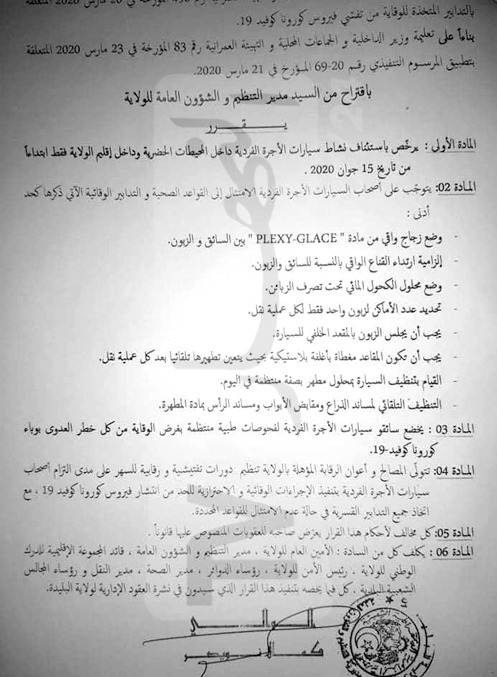 بالتدابير المتخذة للوقاية من تفشي فيروس كورونا كوفيد 19.
بناءاً على تعليمة وزير الداخلية و الجماعات المحلية و التهيئة العمرانية رقم 83 المؤرخة في 23 مارس 2020 المتعلقة
بتطبيق المرسوم التنفيذي رقم 20-69 المؤرخ في 21 مارس 2020.
باقتراح من السيد مدير التنظيم و الشؤون العامة للولاية
يـقــــرر
المادة الأولى : يرخّص باستئناف نشاط سيارات الأجرة الفردية داخل المحيطات الحضرية وداخل إقليم الولاية فقط ابتداءاً
من تاريخ 15 جوان 2020 .
المادة 02: يتوجّب على أصحاب السيارات الأجرة الفردية الامتثال إلى القواعد الصحية و التدابير الوقائية الآتي ذكرها كحد
أدنى :
- وضع زجاج واقي من مادة " PLEXY-GLACE " بين السائق و الزبون.
- إلزامية ارتداء القناع الواقي بالنسبة للسائق والزبون.
- وضع محلول الكحول المائي تحت تصرف الزبائن.
- تحديد عدد الأماكن لزبون واحد فقط لكل عملية نقل.
- يجب أن يجلس الزبون بالمقعد الخلفي للسيارة.
- يجب أن تكون المقاعد مغطاة بأغلفة بلاستيكية بحيث يتعين تطهيرها تلقائيا بعد كل عملية نقل.
- القيام بتنظيف السيارة بمحلول مطهر بصفة منتظمة في اليوم.
- التنظيف التلقائي لمساند الذراع ومقابض الأبواب ومساند الرأس بمادة المطهرة.
المادة 03 : يخضع سائقو سيارات الأجرة الفردية لفحوصات طبية منتظمة بغرض الوقاية من كل خطر العدوى بوباء
كورونا كوفيد-19.
المادة 04: تتولّى المصالح و أعوان الرقابة المؤهلة بالولاية تنظيم دورات تفتيشية و رقابية للسهر على مدى التزام أصحاب
سيارات الأجرة الفردية بتنفيذ الإجراءات الوقائية و الاحترازية للحد من انتشار فيروس كورونا كوفيد 19 ، مع
اتخاذ جميع التدابير القسرية في حالة عدم الامتثال للقواعد المحددة.
المادة 05: كل مخالف لأحكام هذا القرار يعرّض صاحبه للعقوبات المنصوص عليها قانوناً .
المادة 06 : يكلف كل من السادة : الأمين العام للولاية ، مدير التنظيم و الشؤون العامة ، قائد المجموعة الإقليمية للدرك
الوطني للولاية ، رئيس الأمن للولاية ، رؤساء الدوائر ، مدير الصحة ، مدير النقل و رؤساء المجالس
الشعبية البلدية ، كل فيما يخصه بتنفيذ هذا القرار الذي سيدون في نشرة العقود الإدارية لولاية البليدة.
الـوالـــي
كمــال نــويصــر